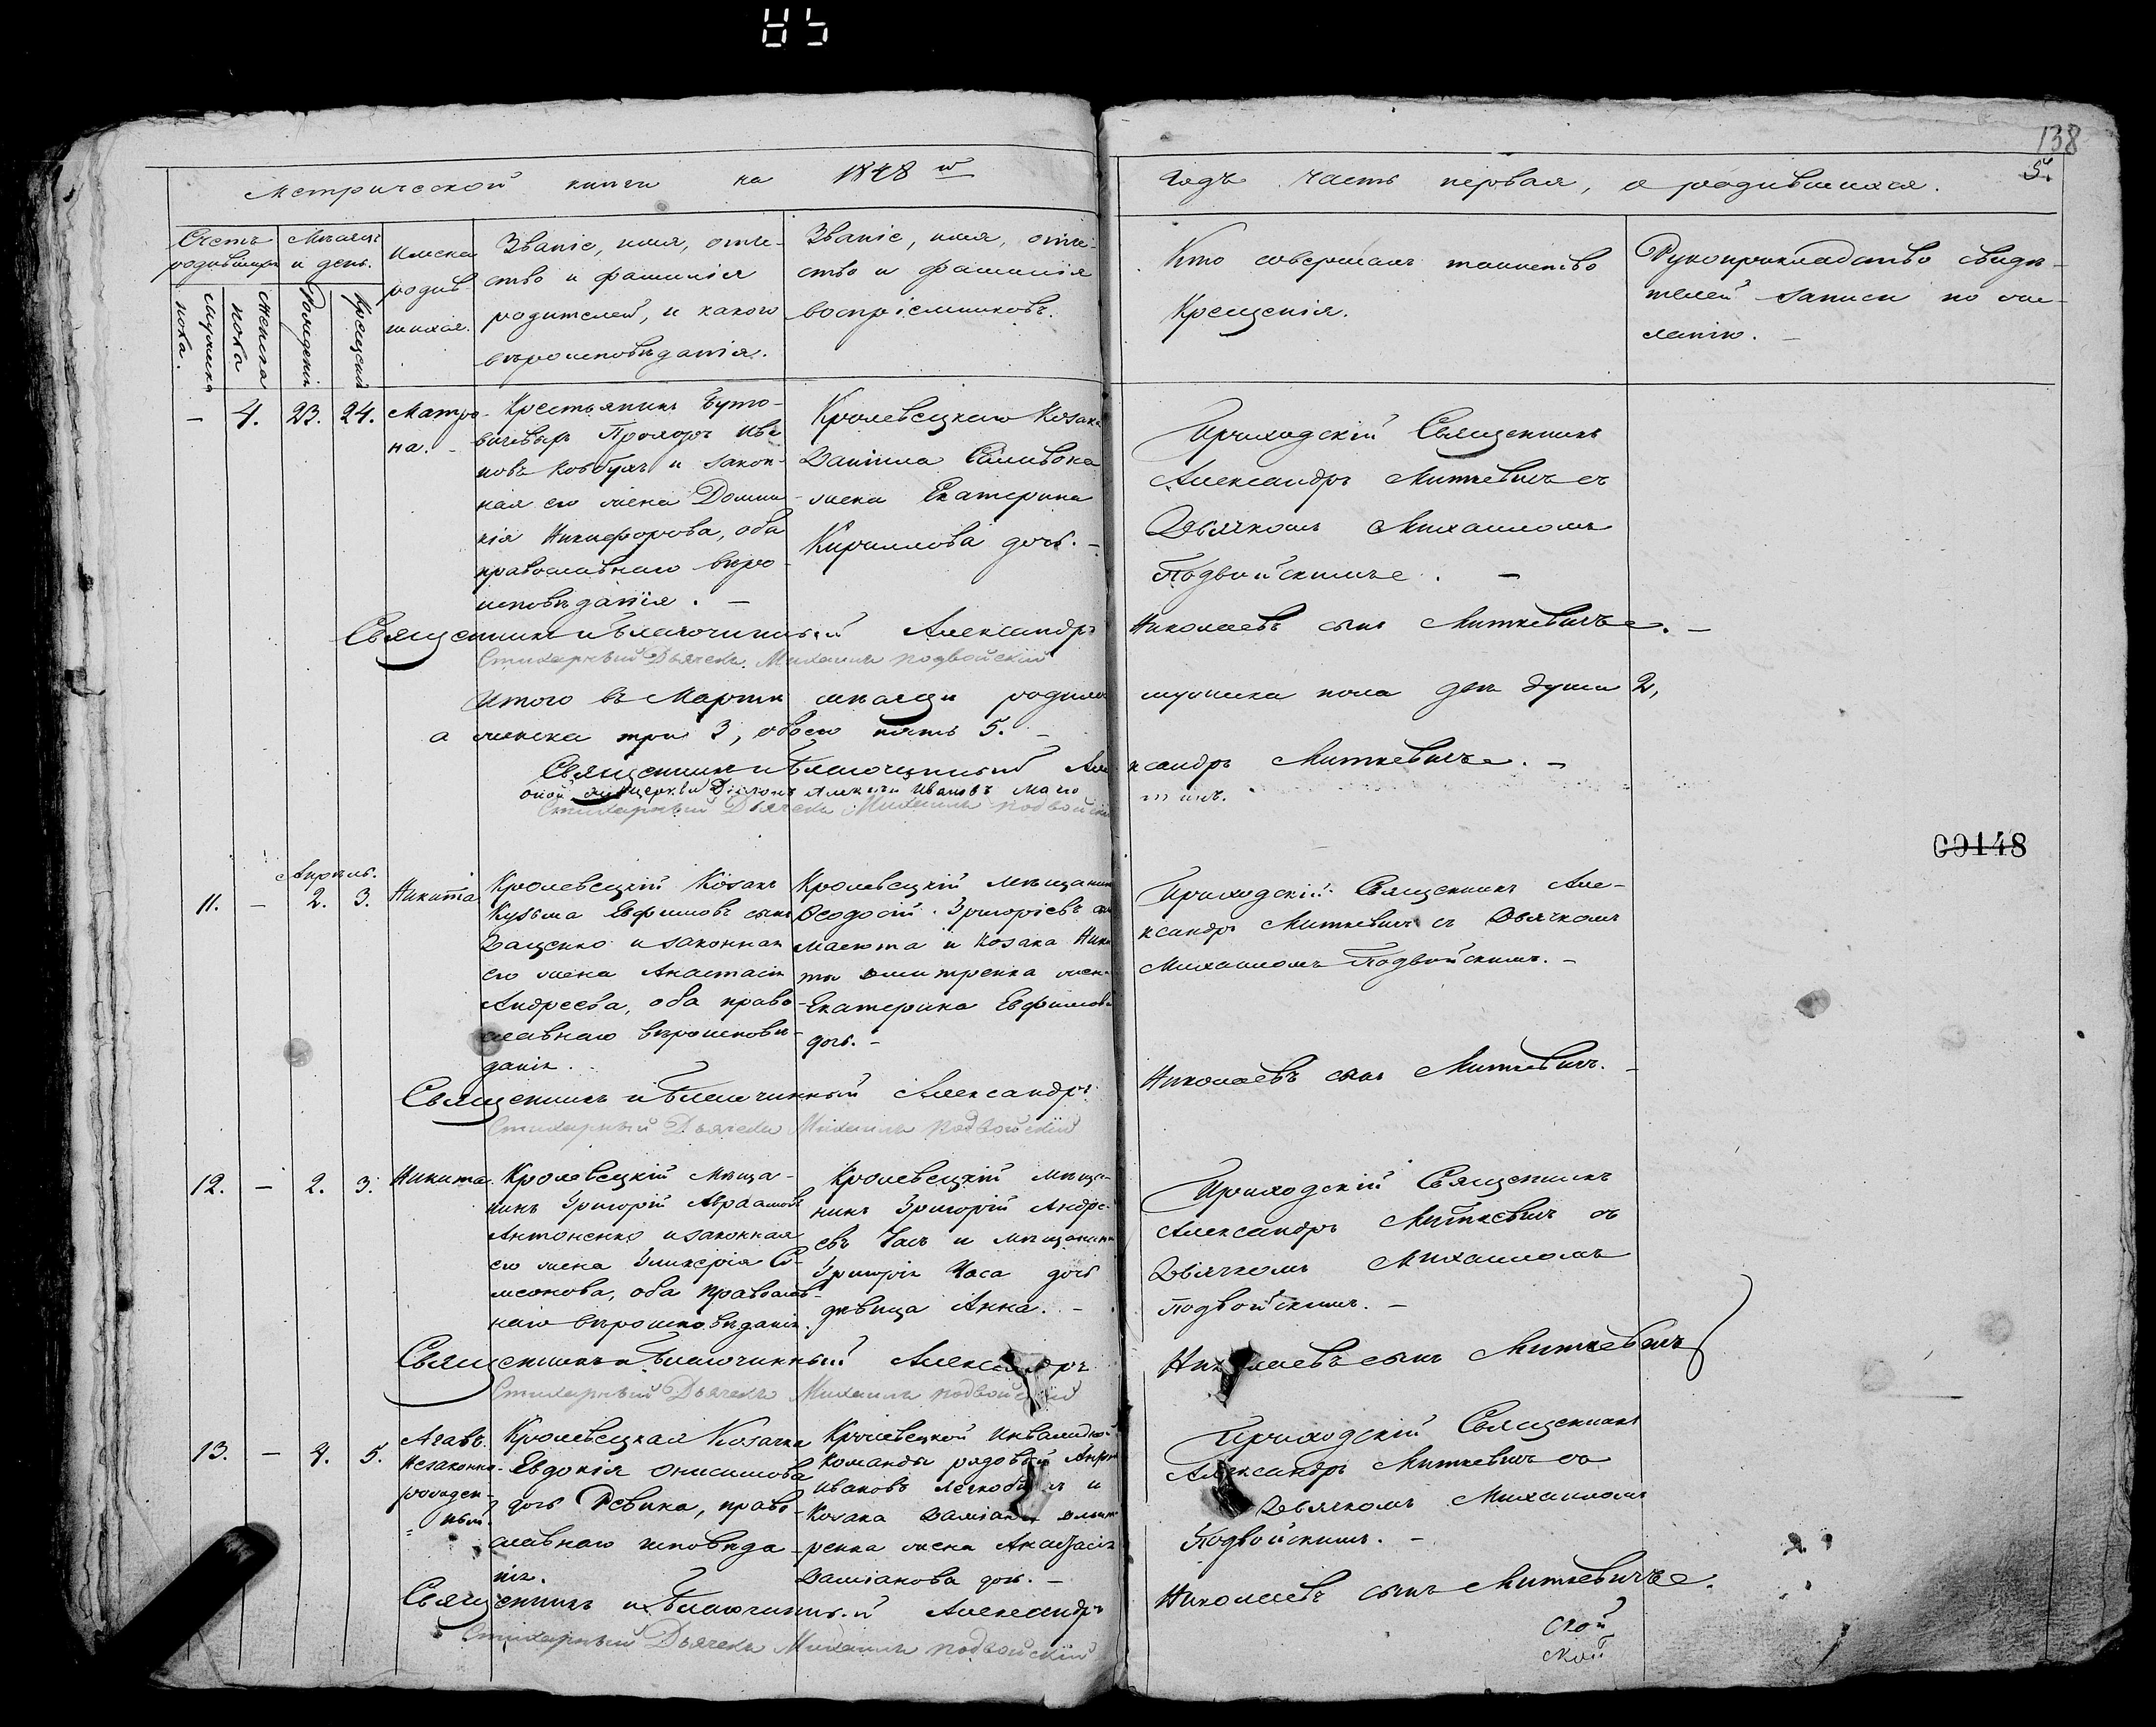 85
138
5.
Метрической книги на 1848й
Годъ часть первая, о родившихся.
Счетъ родившихся
Мужеска пола.
Женска пола
Мѣсяцъ и день.
Рожденія
Крещенія
Имена родив-
шихся.
Званіе, имя, отче-
ство и фамилія
родителей, и какого
вѣроисповѣданія.
Званіе, имя, отче-
ство и фамилія
воспріемниковъ.
Кто совершалъ таинство
Крещенія.
Рукоприкладство свидѣ-
телей записи по же-
ланію.
- 4. 23. 24.
Матро-
на.
Крестьянинъ
Прохоръ Ива
новъ и закон-
ная его жена Домни
кія Никифорова, оба
православнаго вѣро
исповѣданія.
Кролевецкаго Козака
Даніила
жена Екатерина
Кириллова дочь.
Приходскій Священникъ
Александръ Миткевичъ съ
Дьячкомъ Михаиломъ
Подвойскимъ.
Священникъ и Благочинный Александръ Николаевъ сынъ Миткевичъ.
Стихарный Дьячекъ Михаилъ Подвойскій
Итого въ Мартѣ мѣсяцѣ родилось мужеска пола двѣ души 2,
а женска три 3, обоего пять 5.
Священникъ и Благочинный Александръ Миткевичъ.
Иоановъ
Стихарный Дьячекъ Михаилъ Подвойскій
00148
Апрѣль.
11. - 2. 3.
Никита
Кролевецкій Козакъ
Кузьма Евфимовъ сынъ
Даценко и законная
его жена Анастасія
Андреева, оба право-
славнаго вѣроисповѣ-
данія.
Кролевецкій мѣщанинъ
Ѳеодосій Григорієвъ
и Козака Ники
ты Дмитренка жена
Екатерина Евфимова
дочь.
Приходскій Священникъ Але-
ксандръ Миткевичъ съ Дьячкомъ
Михаиломъ Подвойскимъ.
Священникъ и Благочинный Александръ Николаевъ сынъ Миткевичъ.
Стихарный Дьячекъ Михаилъ Подвойскій
12. - 2. 3.
Никита
Кролевецкій мѣща-
нинъ Григорій Авраамовъ
Антоненко и законная
его жена Гликерія Си-
меонова, оба православ-
наго вѣроисповѣданія.
Кролевецкій мѣща-
нинъ Григорій Андре-
евъ Часъ и мѣщанина
Григорія Часа дочь
дѣвица Анна.
Приходскій Священникъ
Александръ Миткевичъ съ
Дьячкомъ Михаиломъ
Подвойскимъ.
Священникъ и Благочинный Александръ Николаевъ сынъ Миткевичъ
Стихарный Дьячекъ Михаилъ Подвойскій
13. - 4. 5.
Агавъ.
Незаконно-
рожден-
ный
Кролевецкая Козачка
Евдокія Онисимова
дочь Ревика, право-
славнаго исповѣда-
нія.
Кролевецкой Инвалидной
Команды рядовый
Ивановъ и
Козака Даміана Дмит
ренка жена Анастасія
Даміанова дочь.
Приходскій Священникъ
Александръ Миткевичъ съ
Дьячкомъ Михаиломъ
Подвойскимъ.
Священникъ и Благочинный Александръ Николаевъ сынъ Миткевичъ.
Стихарный Дьячекъ Михаилъ Подвойскій
ской
ской